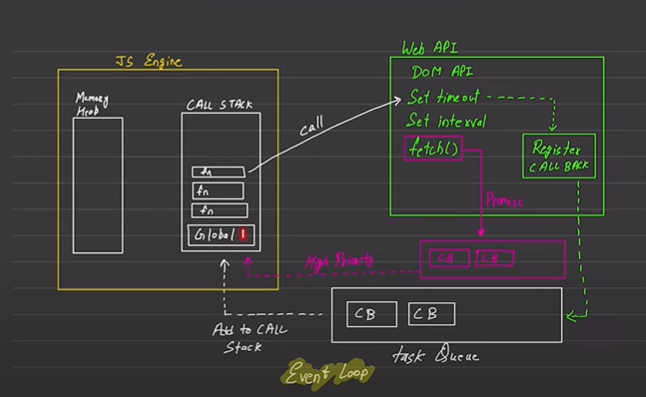 JS Engine
Memory
Heap
CALL STACK
fn
fn
fn
Global
call
Web API
DOM API
Set timeout
Set interval
fetch()
Register
CALL BACK
Promise
CB
CB
High Priority
Add to CALL
Stack
CB
CB
task Queue
Event Loop